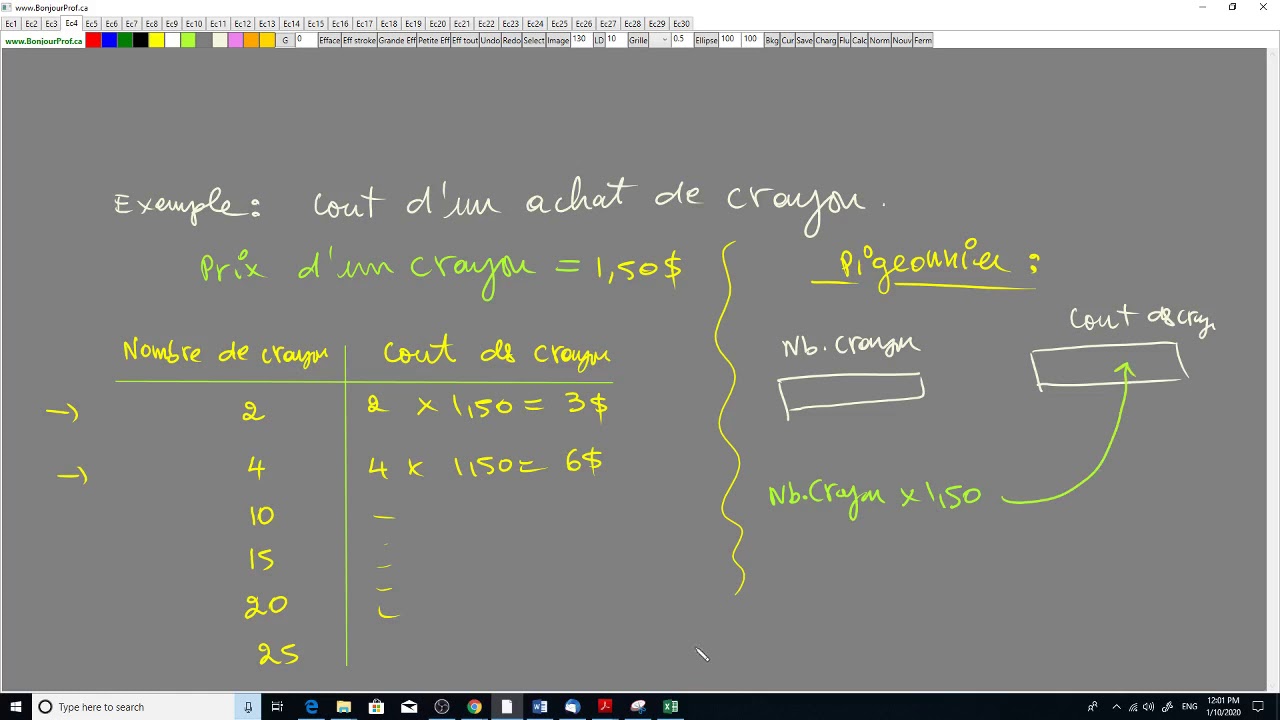 www.BonjourProf.ca
Ec1 Ec2 Ec3 Ec4 Ec5 Ec6 Ec7 Ec8 Ec9 Ec10 Ec11 Ec12 Ec13 Ec14 Ec15 Ec16 Ec17 Ec18 Ec19 Ec20 Ec21 Ec22 Ec23 Ec24 Ec25 Ec26 Ec27 Ec28 Ec29 Ec30
www.BonjourProf.ca G 0 Efface Eff stroke Grande Eff Petite Eff Eff tout Undo Redo Select Image 130 LD 10 Grille 0.5 Ellipse 100 100 Bkg Cur Save Charg Flu Calc Norm Nouv Ferm
Exemple: Cout d'un achat de crayon.
Prix d'un crayon = 1,50$
Nombre de crayon Cout ds crayon
2 2 x 1,50 = 3$
4 4 x 1,50 = 6$
10
15
20
25
Pigeonnier :
Nb. Crayon
Cout ds cray
Nb. Crayon x 1,50
Type here to search
ENG
12:01 PM
1/10/2020